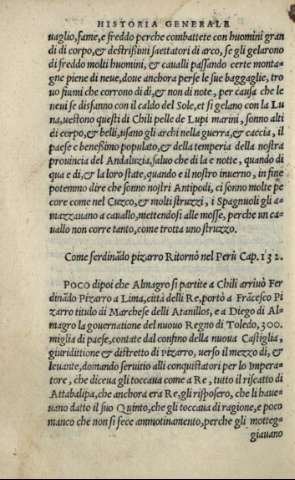 HISTORIA GENERALE
uaglio, fame, e freddo perche combattete con huomini gran
di di corpo, & destrissimi saettatori di arco, se gli gelarono
di freddo molti huomini, & caualli passando certe monta-
gne piene di neue, doue anchora perse le sue baggaglie, tro
uo fiumi che corrono di dì, & non di note, per causa che le
neui se disfanno con il caldo del Sole, et si gelano con la Lu
na, uestono questi di Chili pelle de Lupi marini, sonno alti
di corpo, & belli, usano gli archi nella guerra, & caccia, il
paese e benessimo populato, & della temperia della nostra
prouincia del Andaluzia, saluo che di la e notte, quando di
qua e dì, & la loro state, quando e il nostro inuerno, in fine
potemmo dire che sonno nostri Antipodi, ci sonno molte pe
core come nel Cuzco, & molti struzzi, i Spagnuoli gli a-
mazzauano a cauallo, mettendosi alle mosse, perche un ca-
uallo non corre tanto, come trotta uno struzzo.
Come ferdinãdo pizarro Ritornò nel Perù Cap. 132.
POCO dipoi che Almagro si partite a Chili arriuò Fer
dinãdo Pizarro a Lima, città delli Re, portò a Frãcesco Pi
zarro titulo di Marchese delli Atanillos, e a Diego di Al-
magro la gouernatione del nuouo Regno di Toledo, 300.
miglia di paese, contate dal confino della nuoua Castiglia,
giuridittione & distretto di Pizarro, uerso il mezzo dì, &
leuante, domando seruitio alli conquistatori per lo Impera-
tore, che diceua gli toccaua come a Re, tutto il riscatto di
Attabalipa, che anchora era Re, gli risposero, che li haue-
uano datto il suo Quinto, che gli toccaua di ragione, e poco
manco che non si fece ammotinamento, perche gli motteg-
giauano